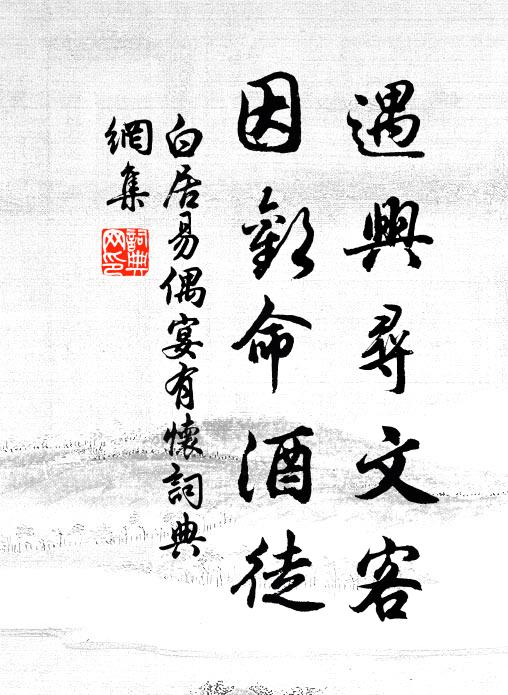 遇興尋文客
因歡命酒徒
白居易偶宴有懷詞典
網集
詞典網印